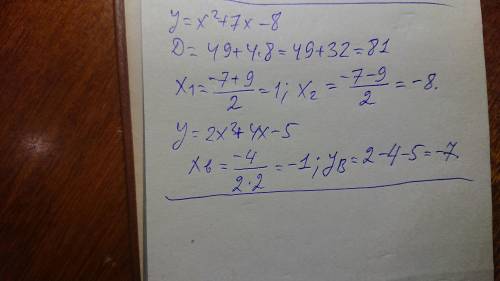 y=x²+7x-8
D=49+4·8=49+32=81
x₁=\frac{-7+9}{2}=1; x₂=\frac{-7-9}{2}=-8.
y=2x²+4x-5
xв=\frac{-4}{2·2}=-1; yв=2-4-5=-7